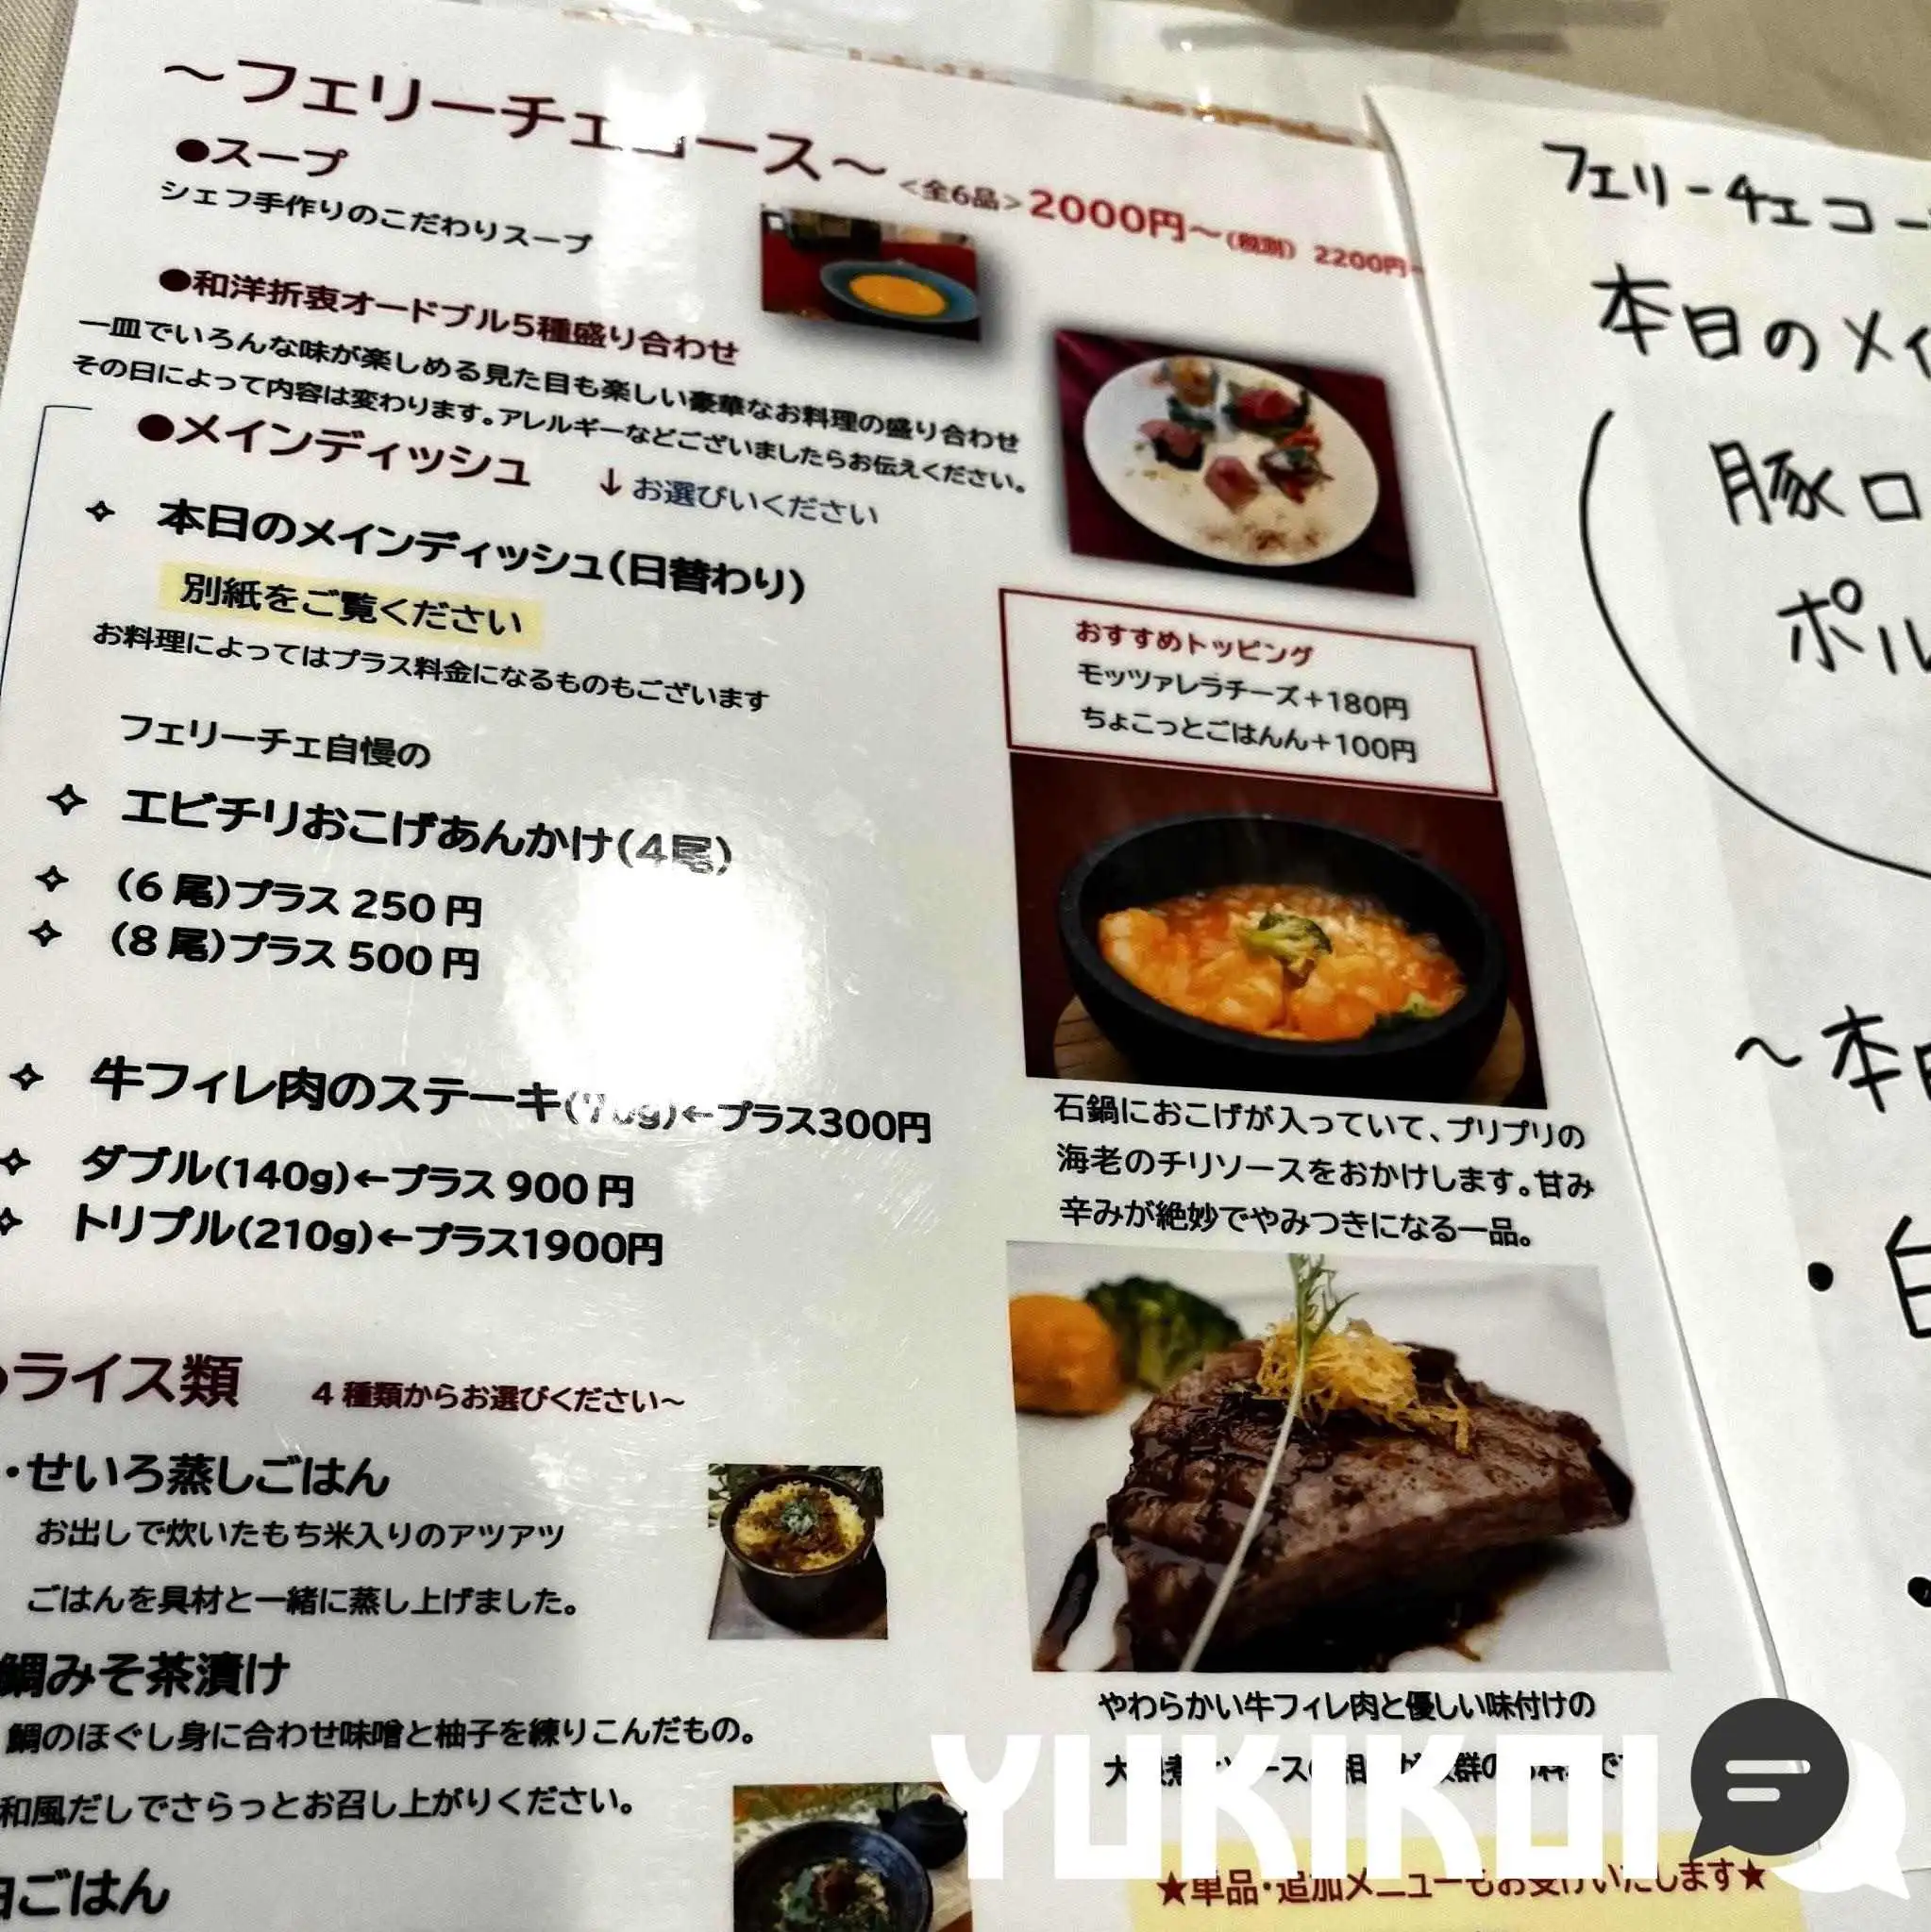 ～フェリーチェコース～
<全6品>2000円～(税別) 2200円～
●スープ
シェフ手作りのこだわりスープ
●和洋折衷オードブル5種盛り合わせ
一皿でいろんな味が楽しめる見た目も楽しい豪華なお料理の盛り合わせ
その日によって内容は変わります。アレルギーなどございましたらお伝えください。
●メインディッシュ ↓お選びいください
✧ 本日のメインディッシュ(日替わり)
別紙をご覧ください
お料理によってはプラス料金になるものもございます
フェリーチェ自慢の
✧ エビチリおこげあんかけ(4尾)
✧ (6 尾)プラス 250 円
✧ (8 尾)プラス 500 円
✧ 牛フィレ肉のステーキ(70g)←プラス300円
✧ ダブル(140g)←プラス 900 円
✧ トリプル(210g)←プラス1900円
●ライス類 4 種類からお選びください～
・せいろ蒸しごはん
お出しで炊いたもち米入りのアツアツ
ごはんを具材と一緒に蒸し上げました。
鯛みそ茶漬け
鯛のほぐし身に合わせ味噌と柚子を練りこんだもの。
和風だしでさらっとお召し上がりください。
白ごはん
おすすめトッピング
モッツァレラチーズ+180円
ちょこっとごはんん+100円
石鍋におこげが入っていて、プリプリの
海老のチリソースをおかけします。甘み
辛みが絶妙でやみつきになる一品。
やわらかい牛フィレ肉と優しい味付けの
★単品・追加メニューもお受けいたします★
フェリーチェコー
本日のメイ
豚ロ
ポル
～本日
・白
YUKIKOI